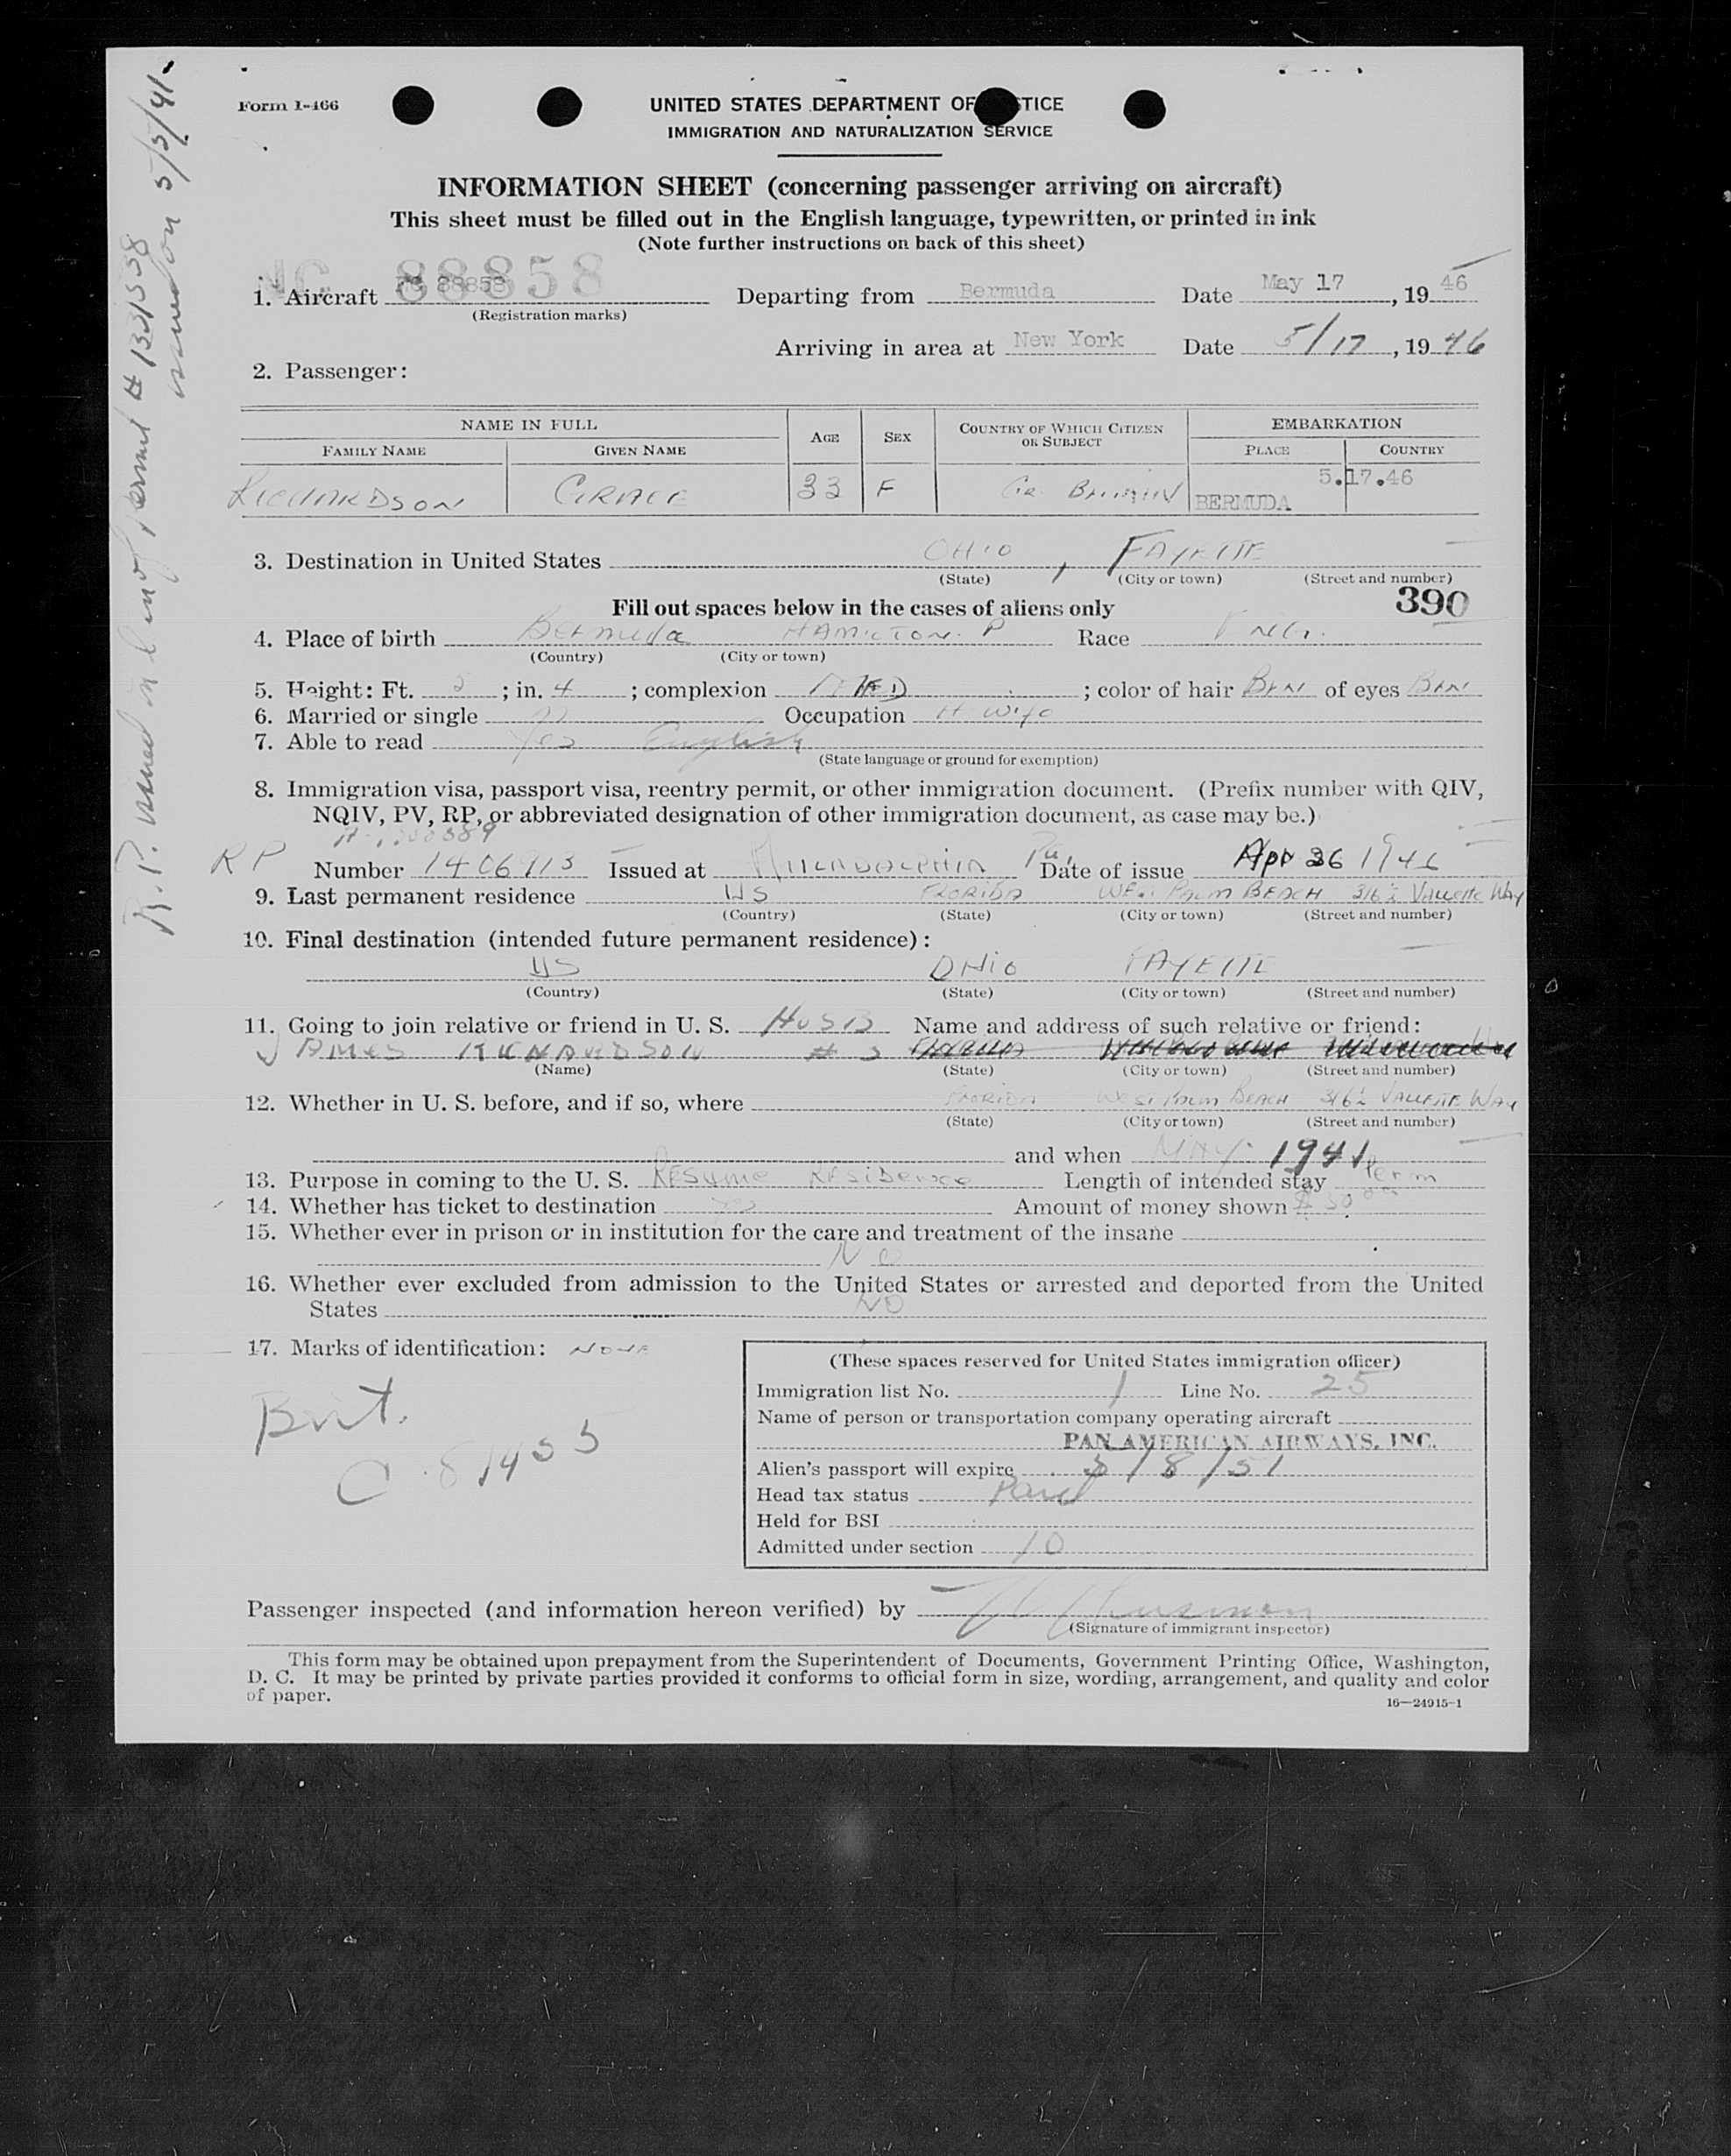 Form I-466
UNITED STATES DEPARTMENT OF STICE
IMMIGRATION AND NATURALIZATION SERVICE
INFORMATION SHEET (concerning passenger arriving on aircraft)
This sheet must be filled out in the English language, typewritten, or printed in ink
(Note further instructions on back of this sheet)
NC. 88858
1. Aircraft NC 88858 Departing from Bermuda Date May 17, 1946
(Registration marks)
Arriving in area at New York Date 5/17, 1946
2. Passenger:
NAME IN FULL AGE SEX COUNTRY OF WHICH CITIZEN OR SUBJECT EMBARKATION
FAMILY NAME GIVEN NAME PLACE COUNTRY
5.17.46
RICHARDSON GRACE 33 F GR. BRITAIN BERMUDA
3. Destination in United States OHIO, FAYETTE
(State) (City or town) (Street and number)
Fill out spaces below in the cases of aliens only 390
4. Place of birth Bermuda HAMILTON. P Race
(Country) (City or town)
5. Height: Ft. ; in. 4 ; complexion MED ; color of hair BRN of eyes BRN
6. Married or single Occupation H Wife
7. Able to read Yes English
(State language or ground for exemption)
8. Immigration visa, passport visa, reentry permit, or other immigration document. (Prefix number with QIV,
NQIV, PV, RP, or abbreviated designation of other immigration document, as case may be.)
RP Number 1406913 Issued at PHILADALPHIA Pa, Date of issue Apr 26 1946
9. Last permanent residence US FLORIDA WEST PALM BEACH 316½ VALLETTE WAY
(Country) (State) (City or town) (Street and number)
10. Final destination (intended future permanent residence):
US OHIO FAYETTE
(Country) (State) (City or town) (Street and number)
11. Going to join relative or friend in U. S. HUSB Name and address of such relative or friend:
JAMES RICHARDSON # 3
(Name) (State) (City or town) (Street and number)
12. Whether in U. S. before, and if so, where FLORIDA WEST PALM BEACH 316½ VALLETTE WAY
(State) (City or town) (Street and number)
and when MAY 1941
13. Purpose in coming to the U. S. RESUME RESIDENCE Length of intended stay Perm
14. Whether has ticket to destination Yes Amount of money shown $ 50.00
15. Whether ever in prison or in institution for the care and treatment of the insane
NO
16. Whether ever excluded from admission to the United States or arrested and deported from the United
States NO
17. Marks of identification: NONE
Brit.
C 81455
(These spaces reserved for United States immigration officer)
Immigration list No. 1 Line No. 25
Name of person or transportation company operating aircraft
PAN AMERICAN AIRWAYS, INC.
Alien's passport will expire 3/8/51
Head tax status Paid
Held for BSI
Admitted under section 10
Passenger inspected (and information hereon verified) by
(Signature of immigrant inspector)
This form may be obtained upon prepayment from the Superintendent of Documents, Government Printing Office, Washington,
D. C. It may be printed by private parties provided it conforms to official form in size, wording, arrangement, and quality and color
of paper.
16—24915-1
R.P. issued in lieu of permit # 1331538
issued on 5/5/41-